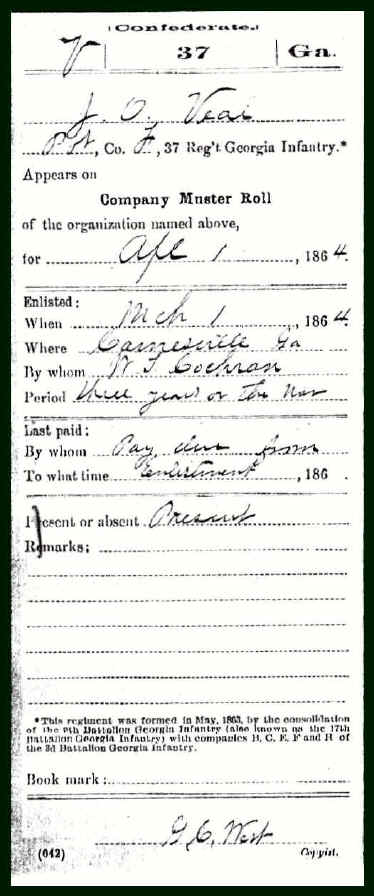 (Confederate.)
V 37 Ga.
J. O. Veal
Pvt, Co. F, 37 Reg't Georgia Infantry.*
Appears on
Company Muster Roll
of the organization named above,
for Apl 1, 1864.
Enlisted:
When Mch 1, 1864.
Where Carnesville Ga
By whom W T Cochran
Period three years or the war
Last paid:
By whom Pay due from
To what time Enlistment, 186 .
Present or absent Present
Remarks:
*This regiment was formed in May, 1863, by the consolidation
of the 9th Battalion Georgia Infantry (also known as the 17th
Battalion Georgia Infantry) with companies B, C, E, F and H of
the 3d Battalion Georgia Infantry.
Book mark:
G. C. West
(642) Copyist.